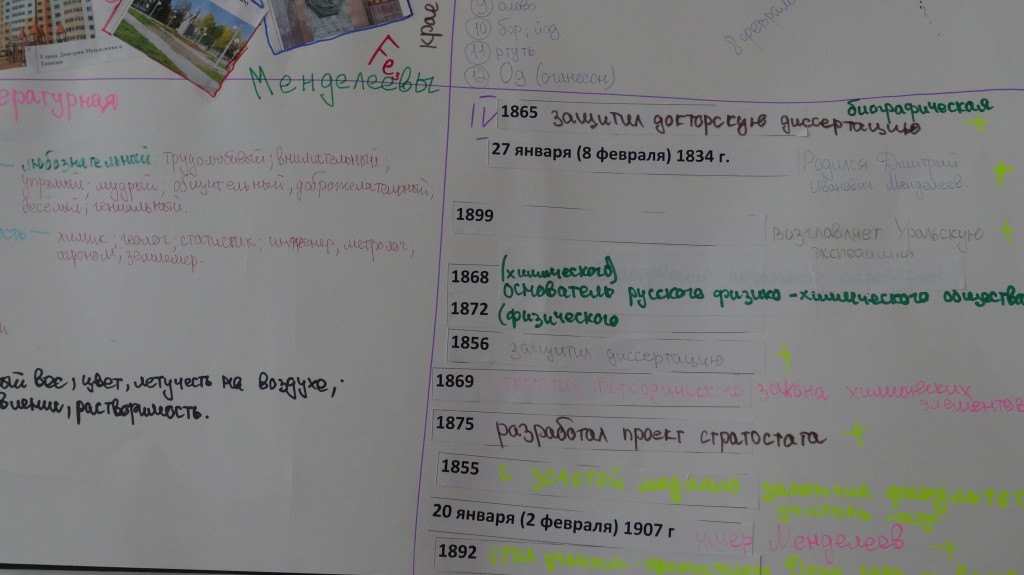 Улица Дмитрия Менделеева в
Тюмени
Fe
крае
Менделеевы
9 олово
10 бор, йод
11 ртуть
12 Од (оганесон)
8 февраля
ературная
любознательный трудолюбивый; внимательный,
упрямый; мудрый; общительный, доброжелательный,
весёлый; гениальный.
ость — химик; геолог; статистик; инженер, метролог,
агроном, землемер.
ый вес, цвет, летучесть на воздухе,
вление, растворимость.
IV
биографическая
1865 защитил докторскую диссертацию +
27 января (8 февраля) 1834 г. Родился Дмитрий
Иванович Менделеев. +
1899 возглавляет Уральскую
экспедицию +
1868 (химического)
основатель русского физико-химического общества
1872 (физического
1856 защитил диссертацию +
1869 открытие периодического закона химических
элементов
1875 разработал проект стратостата +
1855 с золотой медалью
20 января (2 февраля) 1907 г умер Менделеев +
1892 стал